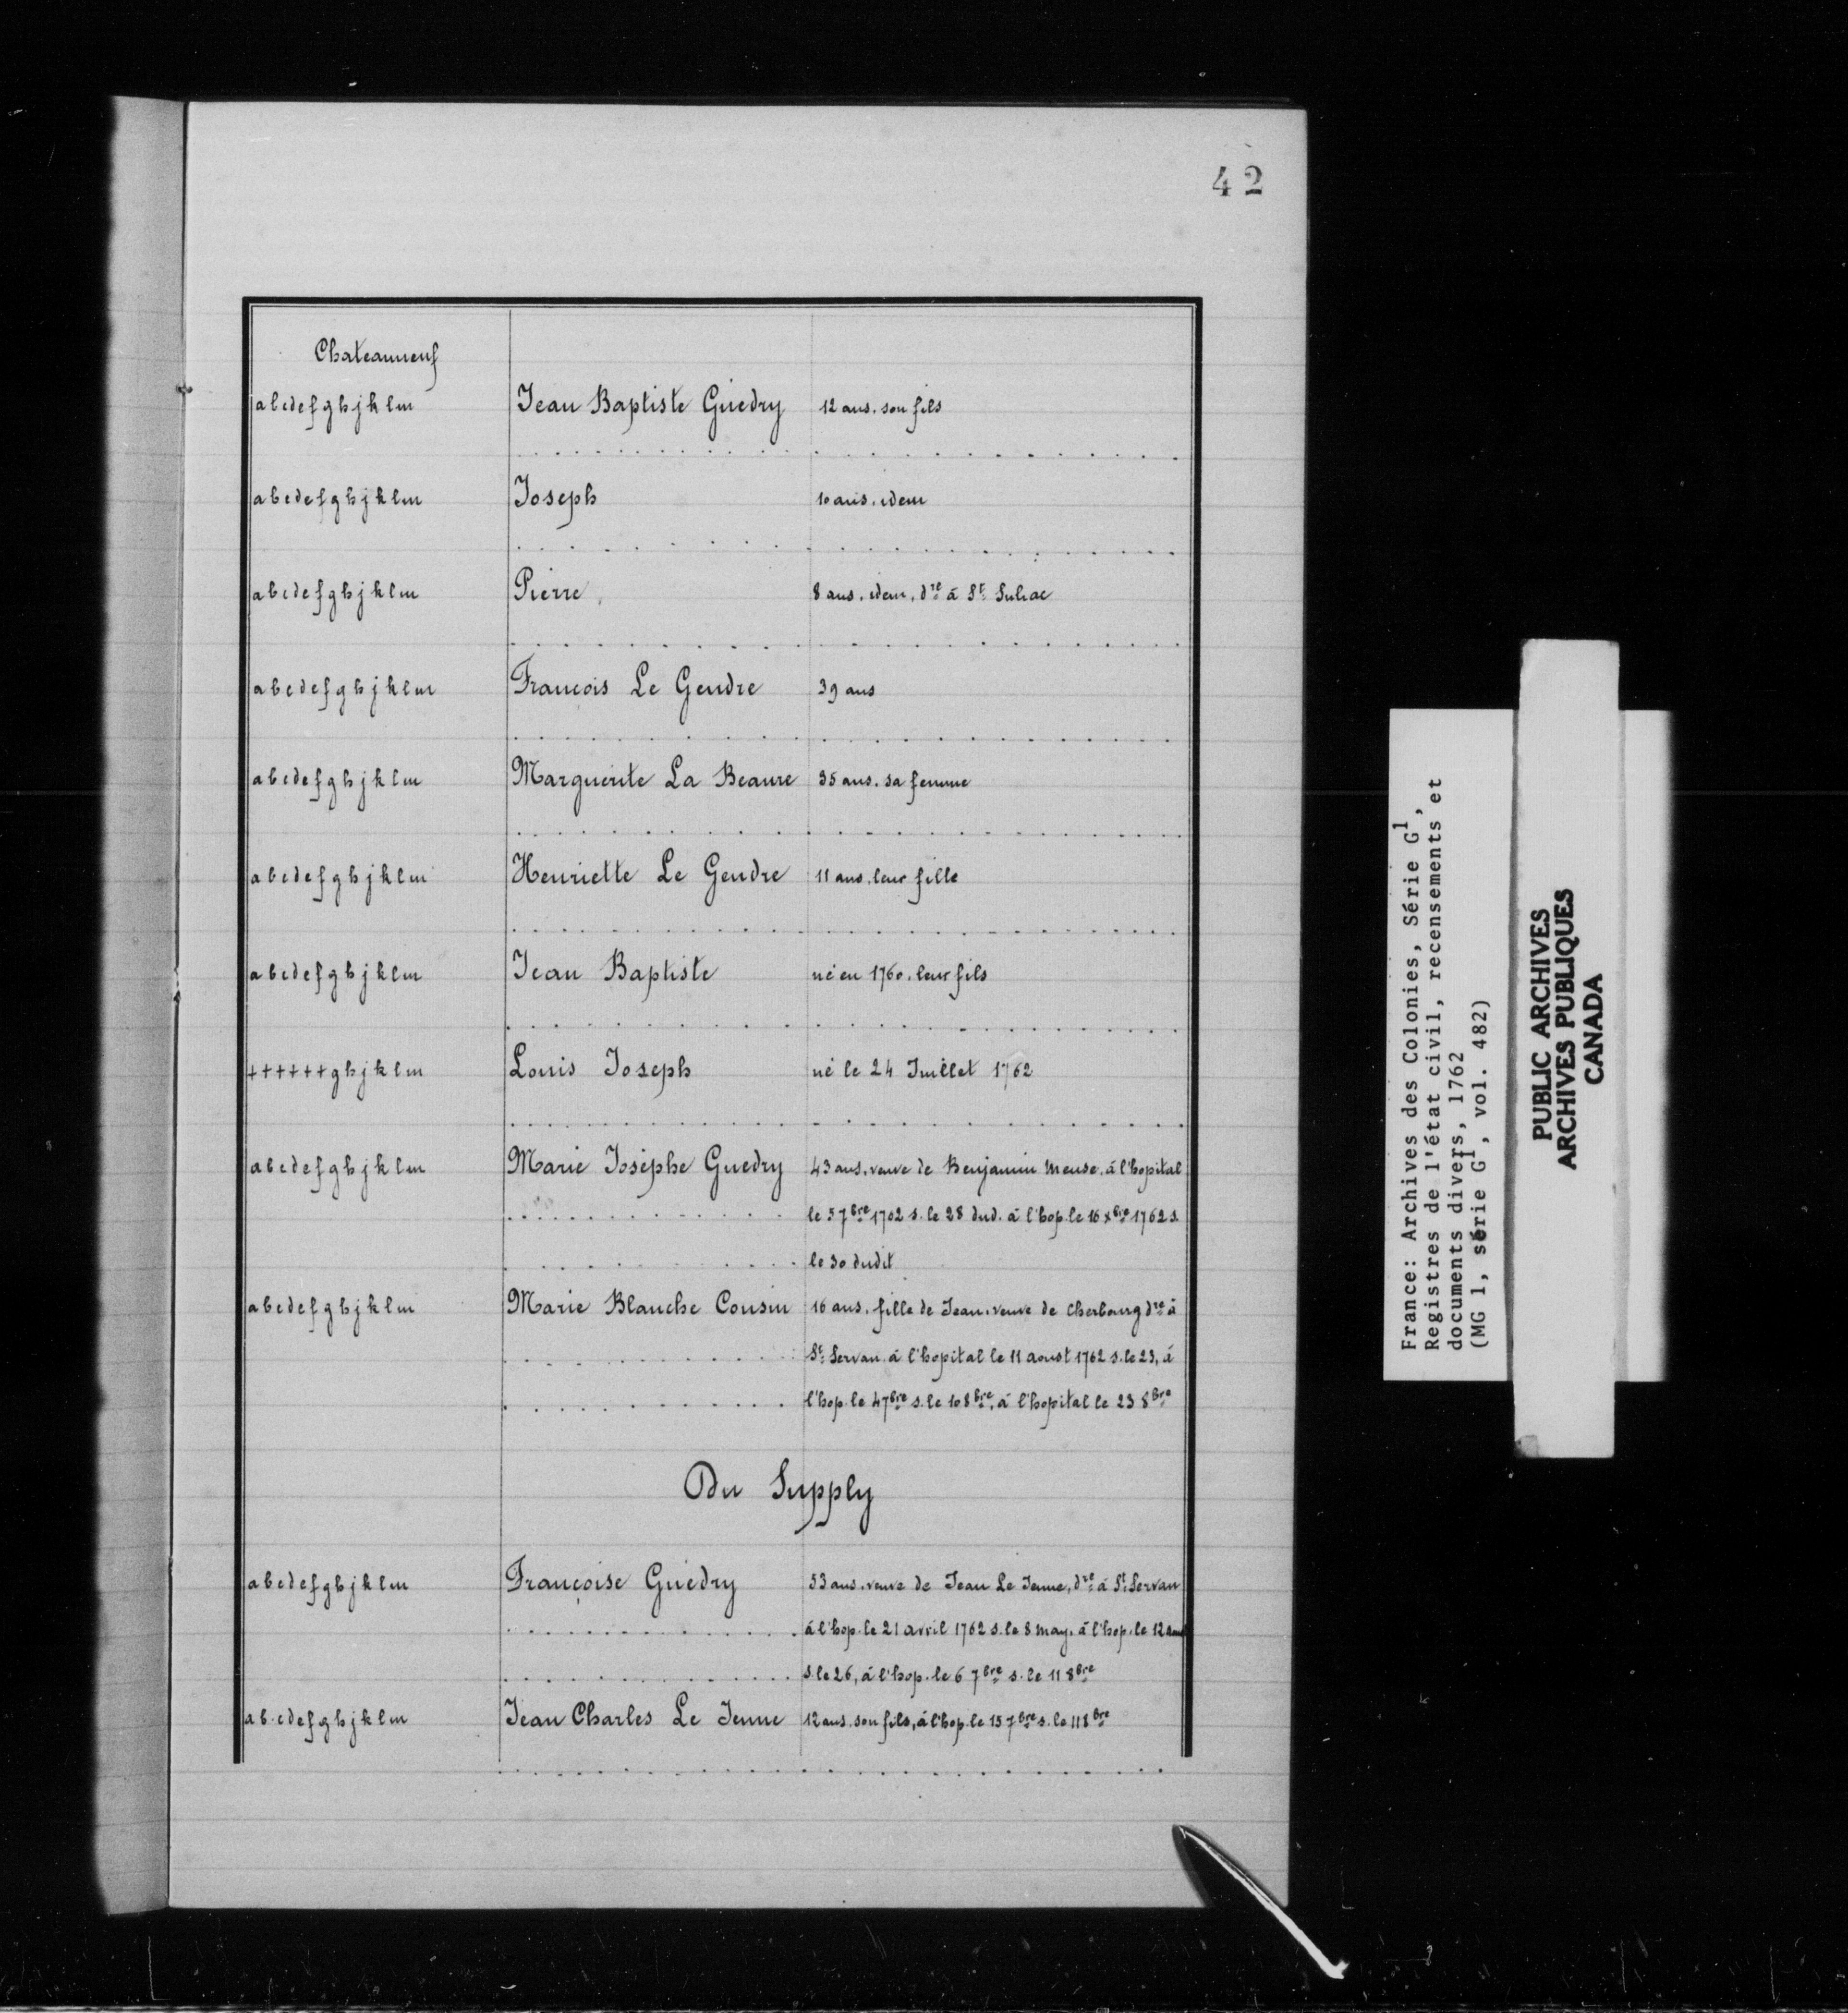 42
Chateauneuf
abcdefghjklm Jean Baptiste Guédry 12 ans. son fils
abcdefghjklm Joseph 10 ans. idem
abcdefghjklm Pierre 8 ans. idem, dre à St Suliac
abcdefghjklm Francois Le Gendre 39 ans
abcdefghjklm Marguerite La Beaure 35 ans. sa femme
abcdefghjklm Henriette Le Gendre 11 ans. leur fille
abcdefghjklm Jean Baptiste né en 1760. leur fils
++++++ghjklm Louis Joseph né le 24 Juillet 1762
abcdefghjklm Marie Josèphe Guedry 43 ans. veuve de Benjamin Meuse. à l'hopital
le 5 7bre 1762 s. le 28 dud. à l'hop. le 16 xbre 1762 s.
le 30 dudit
abcdefghjklm Marie Blanche Cousin 16 ans. fille de Jean. venue de Cherbourg dre à
St Servan. à l'hopital le 11 aoust 1762 s. le 23, à
l'hop. le 4 7bre s. le 10 8bre. à l'hopital le 23 8bre
Du Supply
abcdefghjklm Françoise Guédry 53 ans. veuve de Jean Le Jeune, dre à St Servan
à l'hop. le 21 avril 1762 s. le 8 may. à l'hop. le 12
s. le 26, à l'hop. le 6 7bre s. le 11 8bre
abcdefghjklm Jean Charles Le Jeune 12 ans. son fils, à l'hop. le 15 7bre s. le 11 8bre
France: Archives des Colonies, Série G1,
Registres de l'état civil, recensements et
documents divers, 1762
(MG 1, série G1, vol. 482)
PUBLIC ARCHIVES
ARCHIVES PUBLIQUES
CANADA